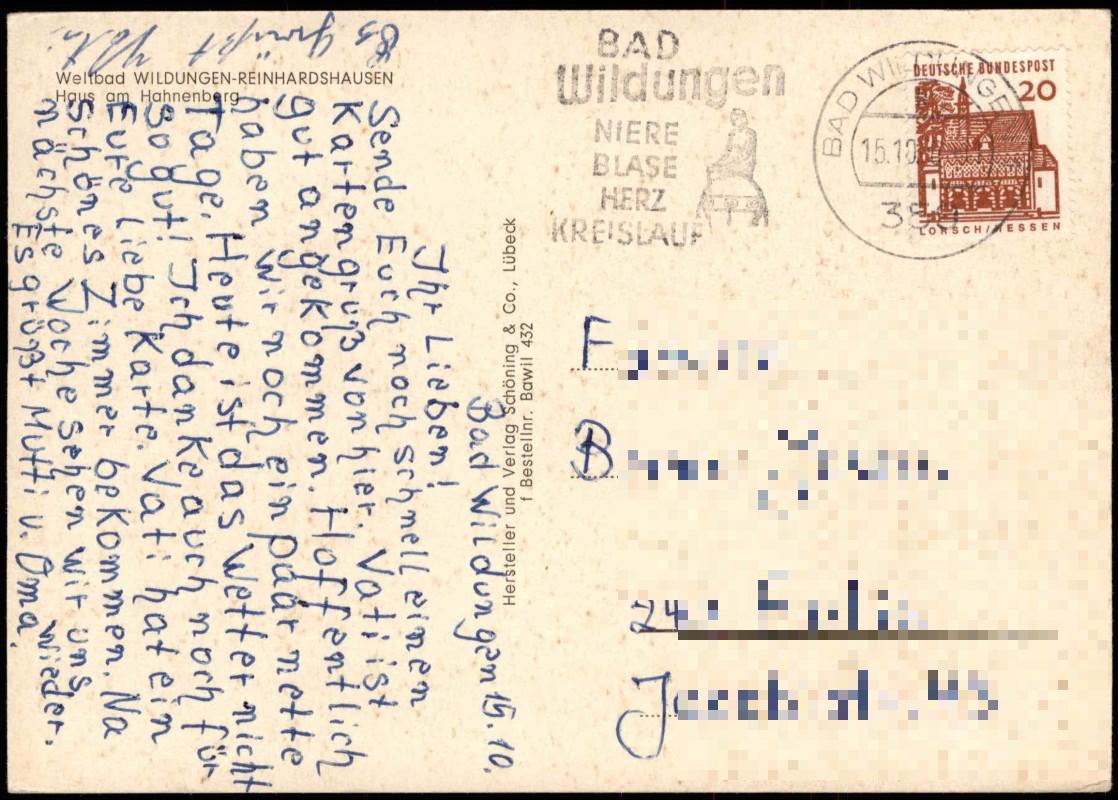 Weltbad WILDUNGEN-REINHARDSHAUSEN
Haus am Hahnenberg
BAD
Wildungen
NIERE
BLASE
HERZ
KREISLAUF
BAD WILDUNGEN
15.10.
DEUTSCHE BUNDESPOST
20
LORSCH/HESSEN
Hersteller und Verlag Schöning & Co., Lübeck
f Bestellnr. Bawil 432
Bad Wildungen 15. 10.
Ihr Lieben!
Sende Euch noch schnell einen
Kartengruß von hier. Vati ist
gut angekommen. Hoffentlich
haben wir noch ein paar nette
Tage. Heute ist das Wetter nicht
so gut! Ich danke auch noch für
Eure liebe Karte. Vati hat ein
schönes Zimmer bekommen. Na
nächste Woche sehen wir uns
wieder.
Es grüßt Mutti u. Oma.
Es grüßt Vati
F
B
24
J